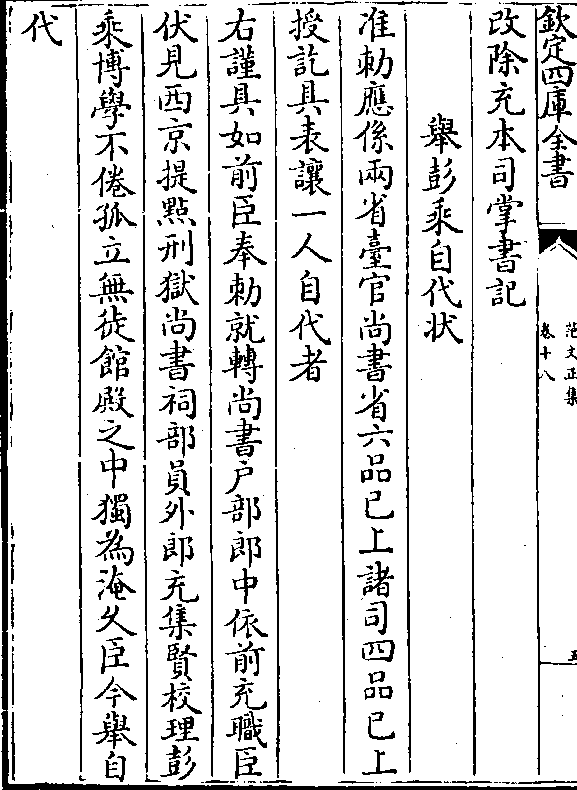 欽定四庫全書
范文正集
卷十八
五
改除充本司掌書記
舉彭乘自代狀
准勅應係兩省臺官尚書省六品已上諸司四品已上
授訖具表讓一人自代者
右謹具如前臣奉勅就轉尚書户部郎中依前充職臣
伏見西京提點刑獄尚書祠部員外郎充集賢校理彭
乘博學不倦孤立無徒館殿之中獨為淹久臣今舉自
代